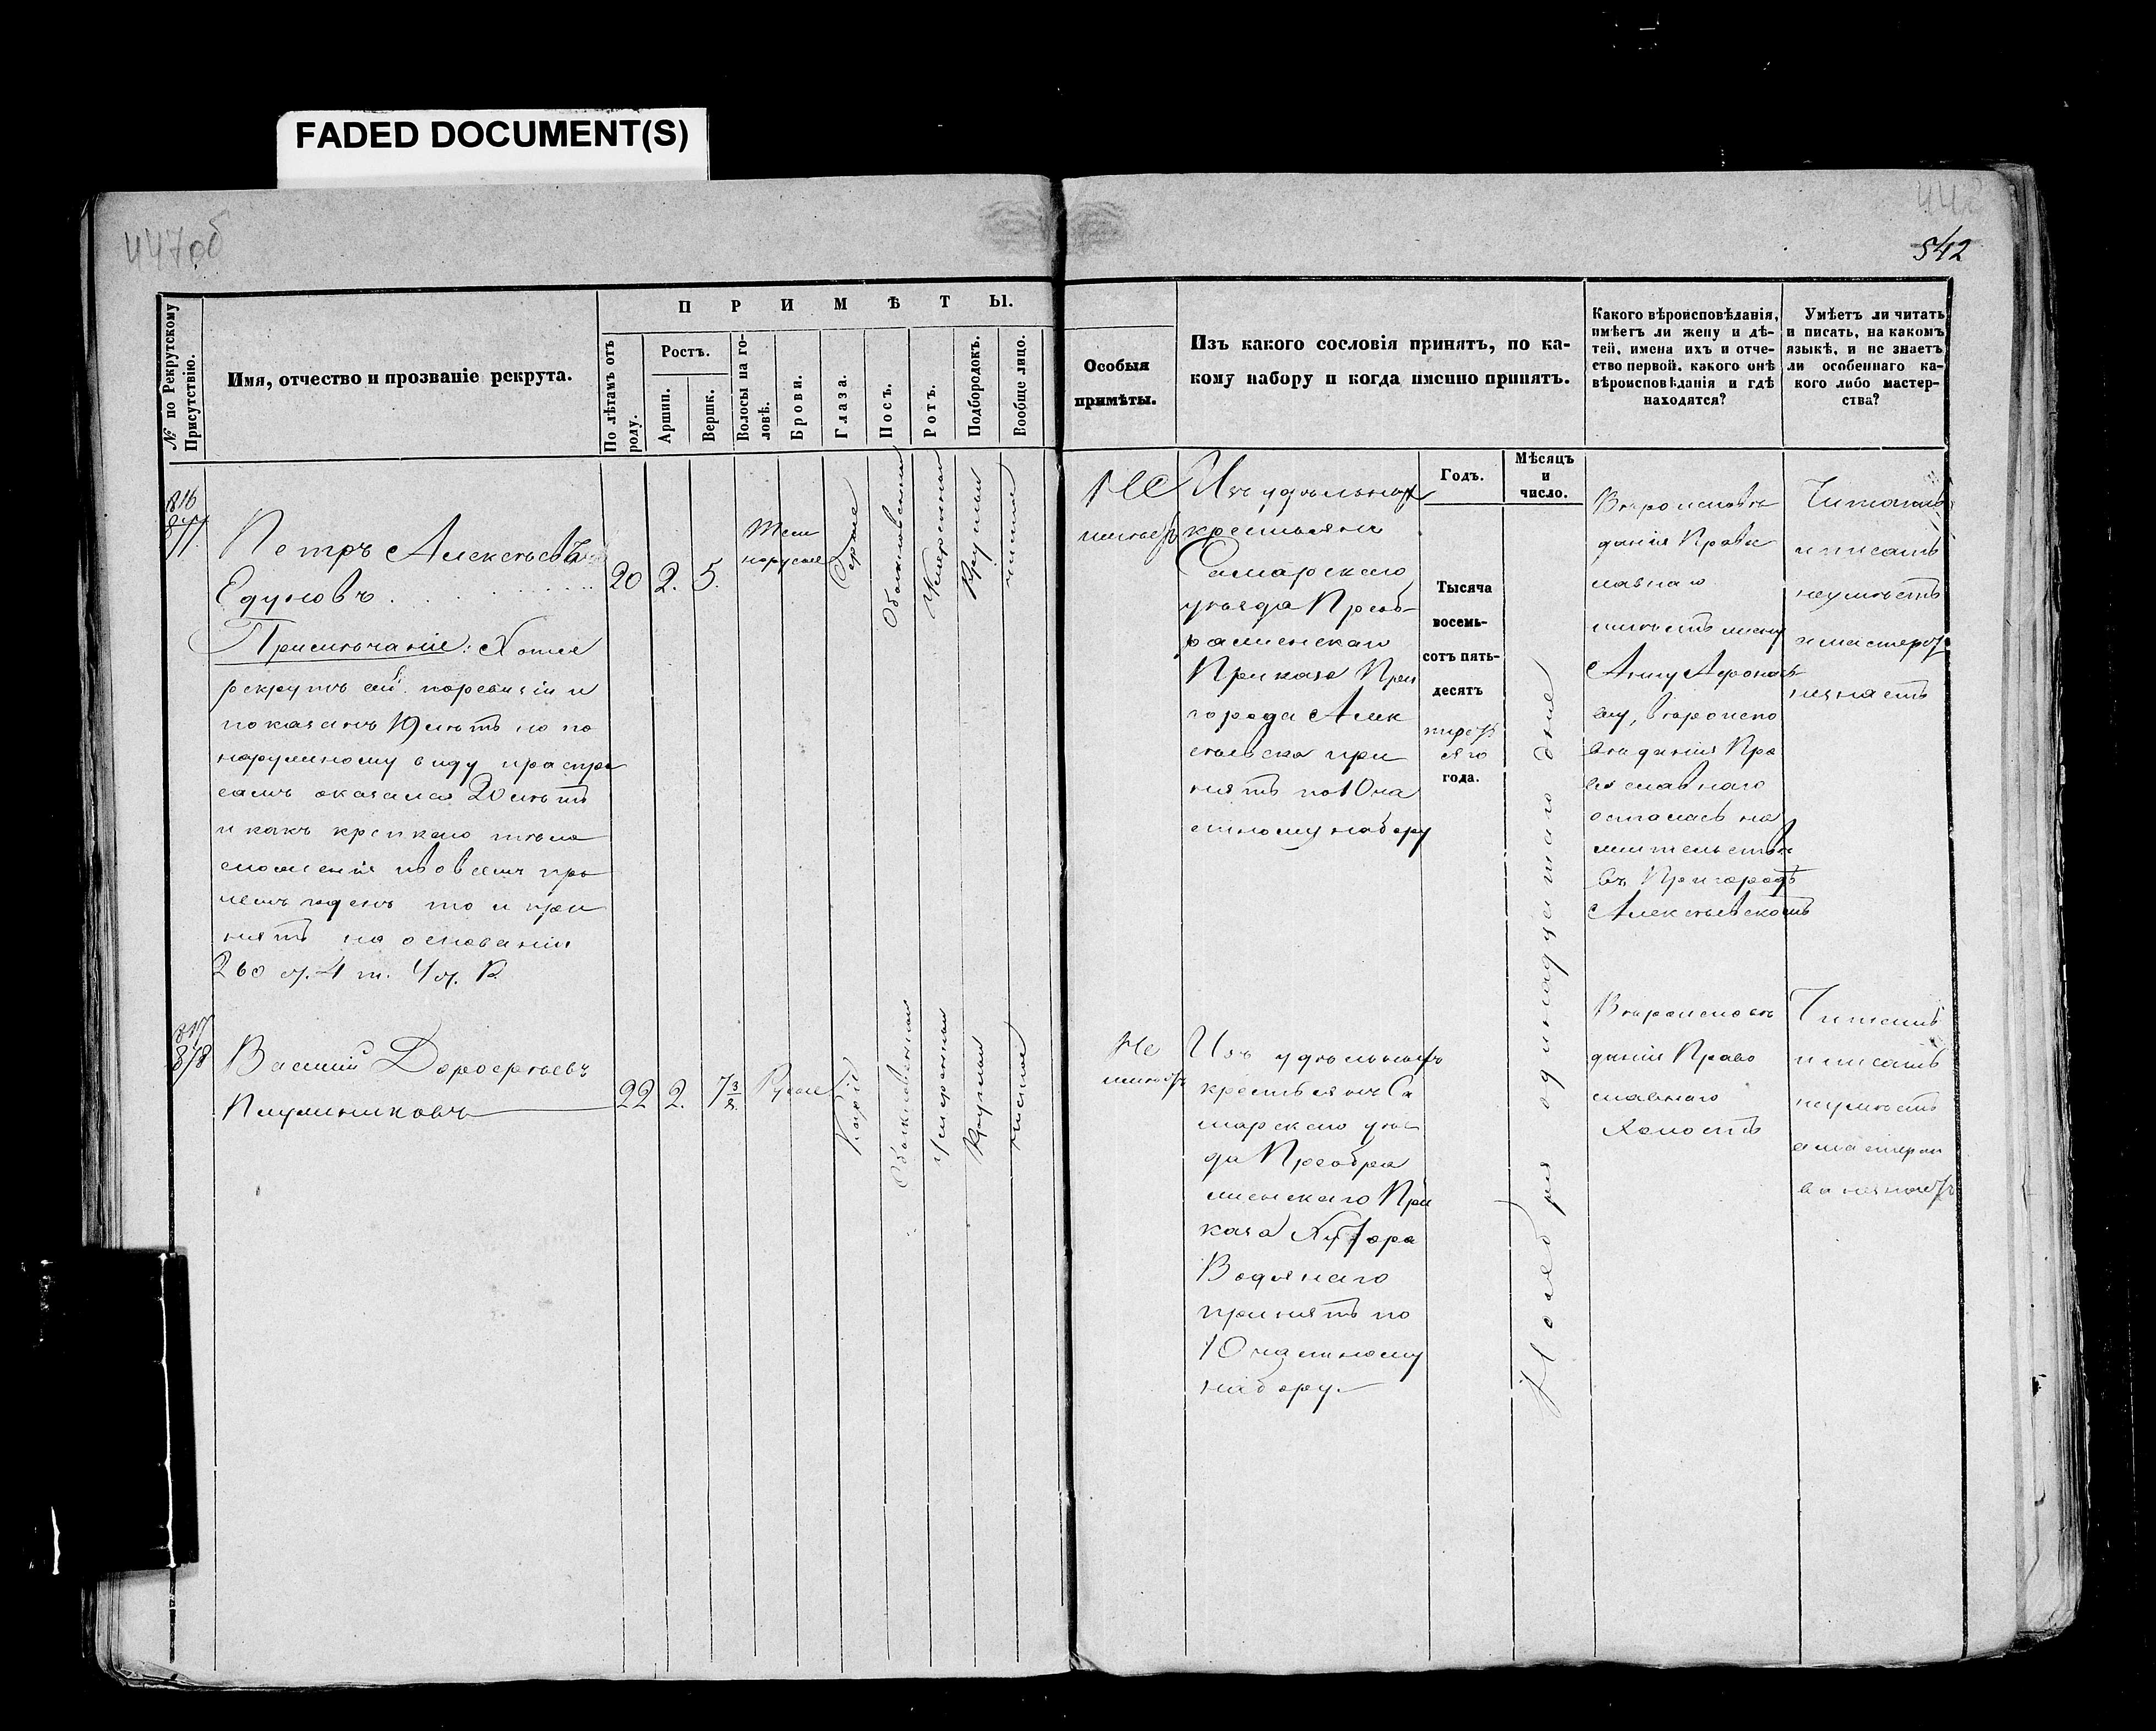 FADED DOCUMENT(S)
447об
542
№ по Рекрутскому Присутствію.
Имя, отчество и прозваніе рекрута.
ПРИМѢТЫ.
По лѣтамъ отъ роду.
Ростъ.
Аршин.
Вершк.
Волосы на головѣ.
Брови.
Глаза.
Носъ.
Ротъ.
Подбородокъ.
Вообще лицо.
Особыя
примѣты.
Изъ какого сословія принятъ, по ка-
кому набору и когда имено принятъ.
Какого вѣроисповѣданія,
имѣетъ ли жену и дѣ-
тей, имена ихъ и отче-
ство первой, какого онѣ
вѣроисповѣданія и гдѣ
находятся?
Умѣетъ ли читать
и писать, на какомъ
языкѣ, и не знаетъ
ли особеннаго ка-
кого либо мастер-
ства?
Годъ.
Мѣсяцъ
и
число.
816
877
Петръ Алексѣевъ
Едуновъ
20
2.
5.
Тем
норусые
Сѣрые
Обыкновенный
Умѣренный
Круглый
чистое
Примѣчаніе: Хотя
рекрутъ сей по ревизіи и
показанъ 19 лѣтъ но по
наружному виду и распро
самъ оказался 20 лѣтъ
и какъ крепкаго тѣло
сложенія и во всемъ про
чемъ годенъ то и при
нятъ на основаніи
260 ст. 4 т.
Не
имѣетъ
Изъ удѣльныхъ
крестьянъ
Самарскаго
уѣзда Преоб-
раженскаго
Приказа При
города Алек
сѣевска при
нятъ по 10 ча
стному набору
Тысяча
восемь-
сотъ пять-
десятъ
года.
Ноября одинадцатаго дня
Вѣроисповѣ
данія Право
славнаго
имѣетъ жену
Анну Афонась
еву, вѣроиспо
вѣданія Пра
вославнаго
осталась на
жительствѣ
въ Пригородѣ
Алексѣевскѣ
Читать
и писать
неумѣетъ
и мастерст
незнаетъ
817
878
Василій Дорофѣевъ
22
2.
7 3/8.
Русые
Каріе
Обыкновенный
Умѣренный
Круглый
Чистое
Не
имѣетъ
Изъ удѣльныхъ
крестьянъ Са
марскаго уѣз
да Преобра
женскаго При
каза Хутора
Водянаго
принятъ по
10 частному
набору.
Вѣроисповѣ
данія Право
славнаго
Холостъ
Читать
и писать
неумѣетъ
а мастерст
ва незнаетъ